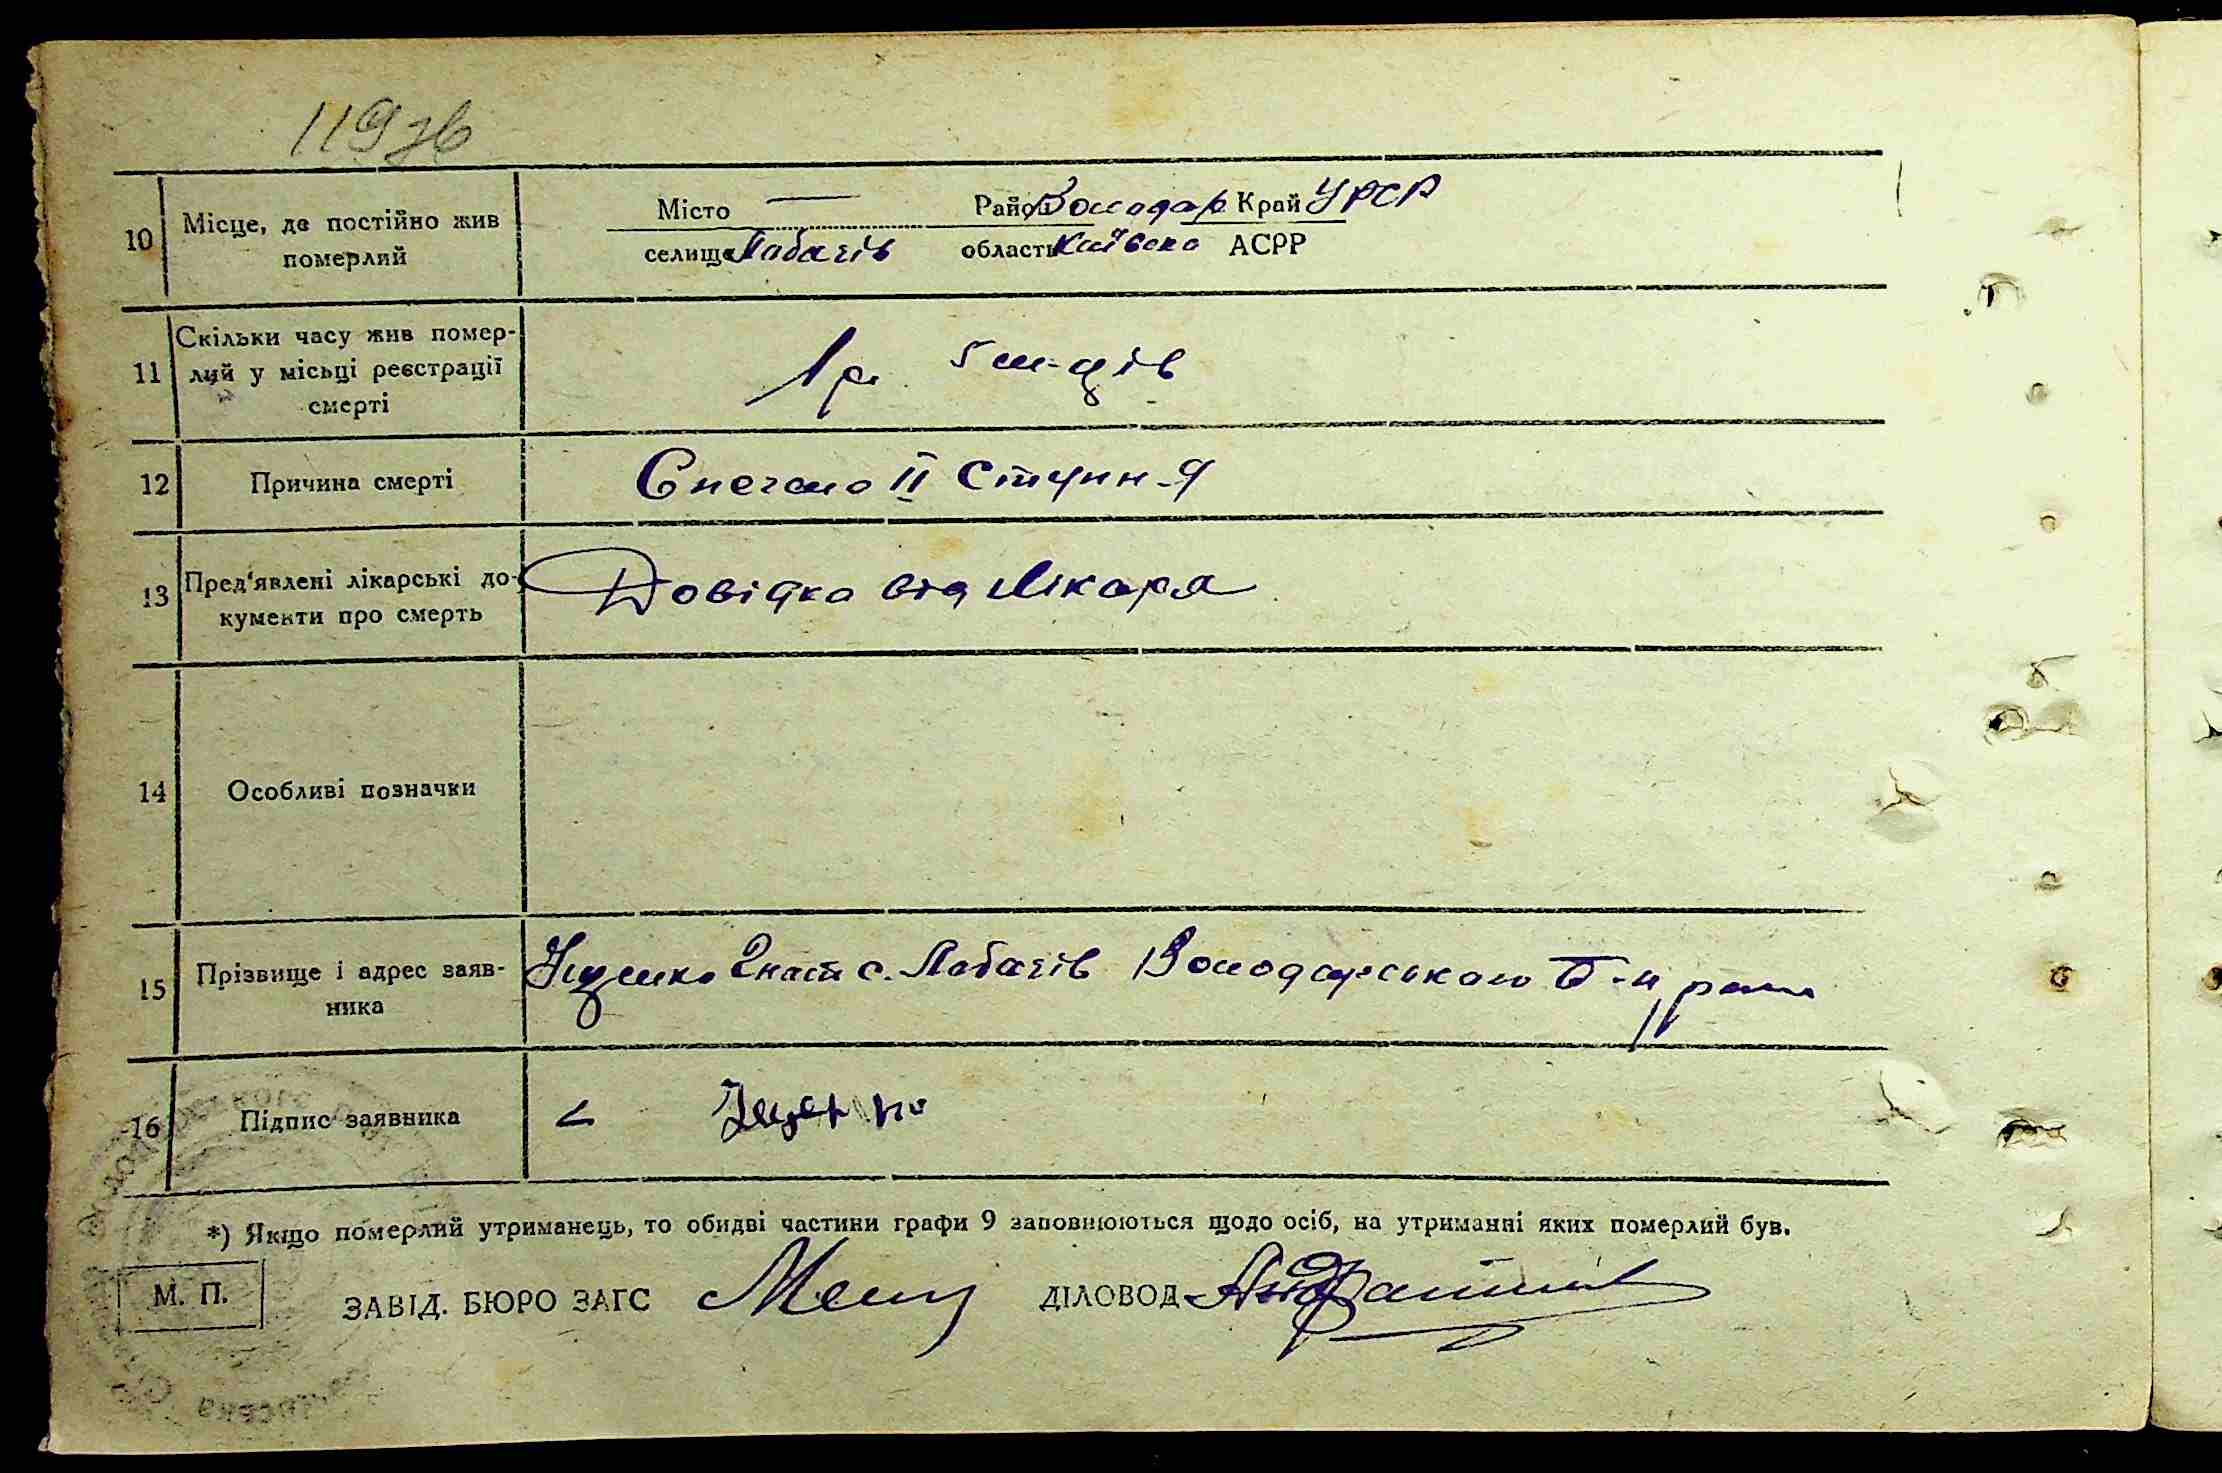 119зв
Місто — Район Володар Край УРСР
10 Місце, де постійно жив
померлий
селище Лобачів область Київска АСРР
11 Скільки часу жив помер-
лий у місьці реєстрації
смерті
1 р. 5 м-ців
12 Причина смерті
Спечало II Ступн-я
13 Пред'явлені лікарські до-
кументи про смерть
Довідка від Лікаря
14 Особливі позначки
15 Прізвище і адрес заяв-
ника
Гнат с. Лобачів Володарського р-ну
16 Підпис заявника
*) Якщо померлий утриманець, то обидві частини графи 9 заповнюються щодо осіб, на утриманні яких померлий був.
М. П.
ЗАВІД. БЮРО ЗАГС
ДІЛОВОД